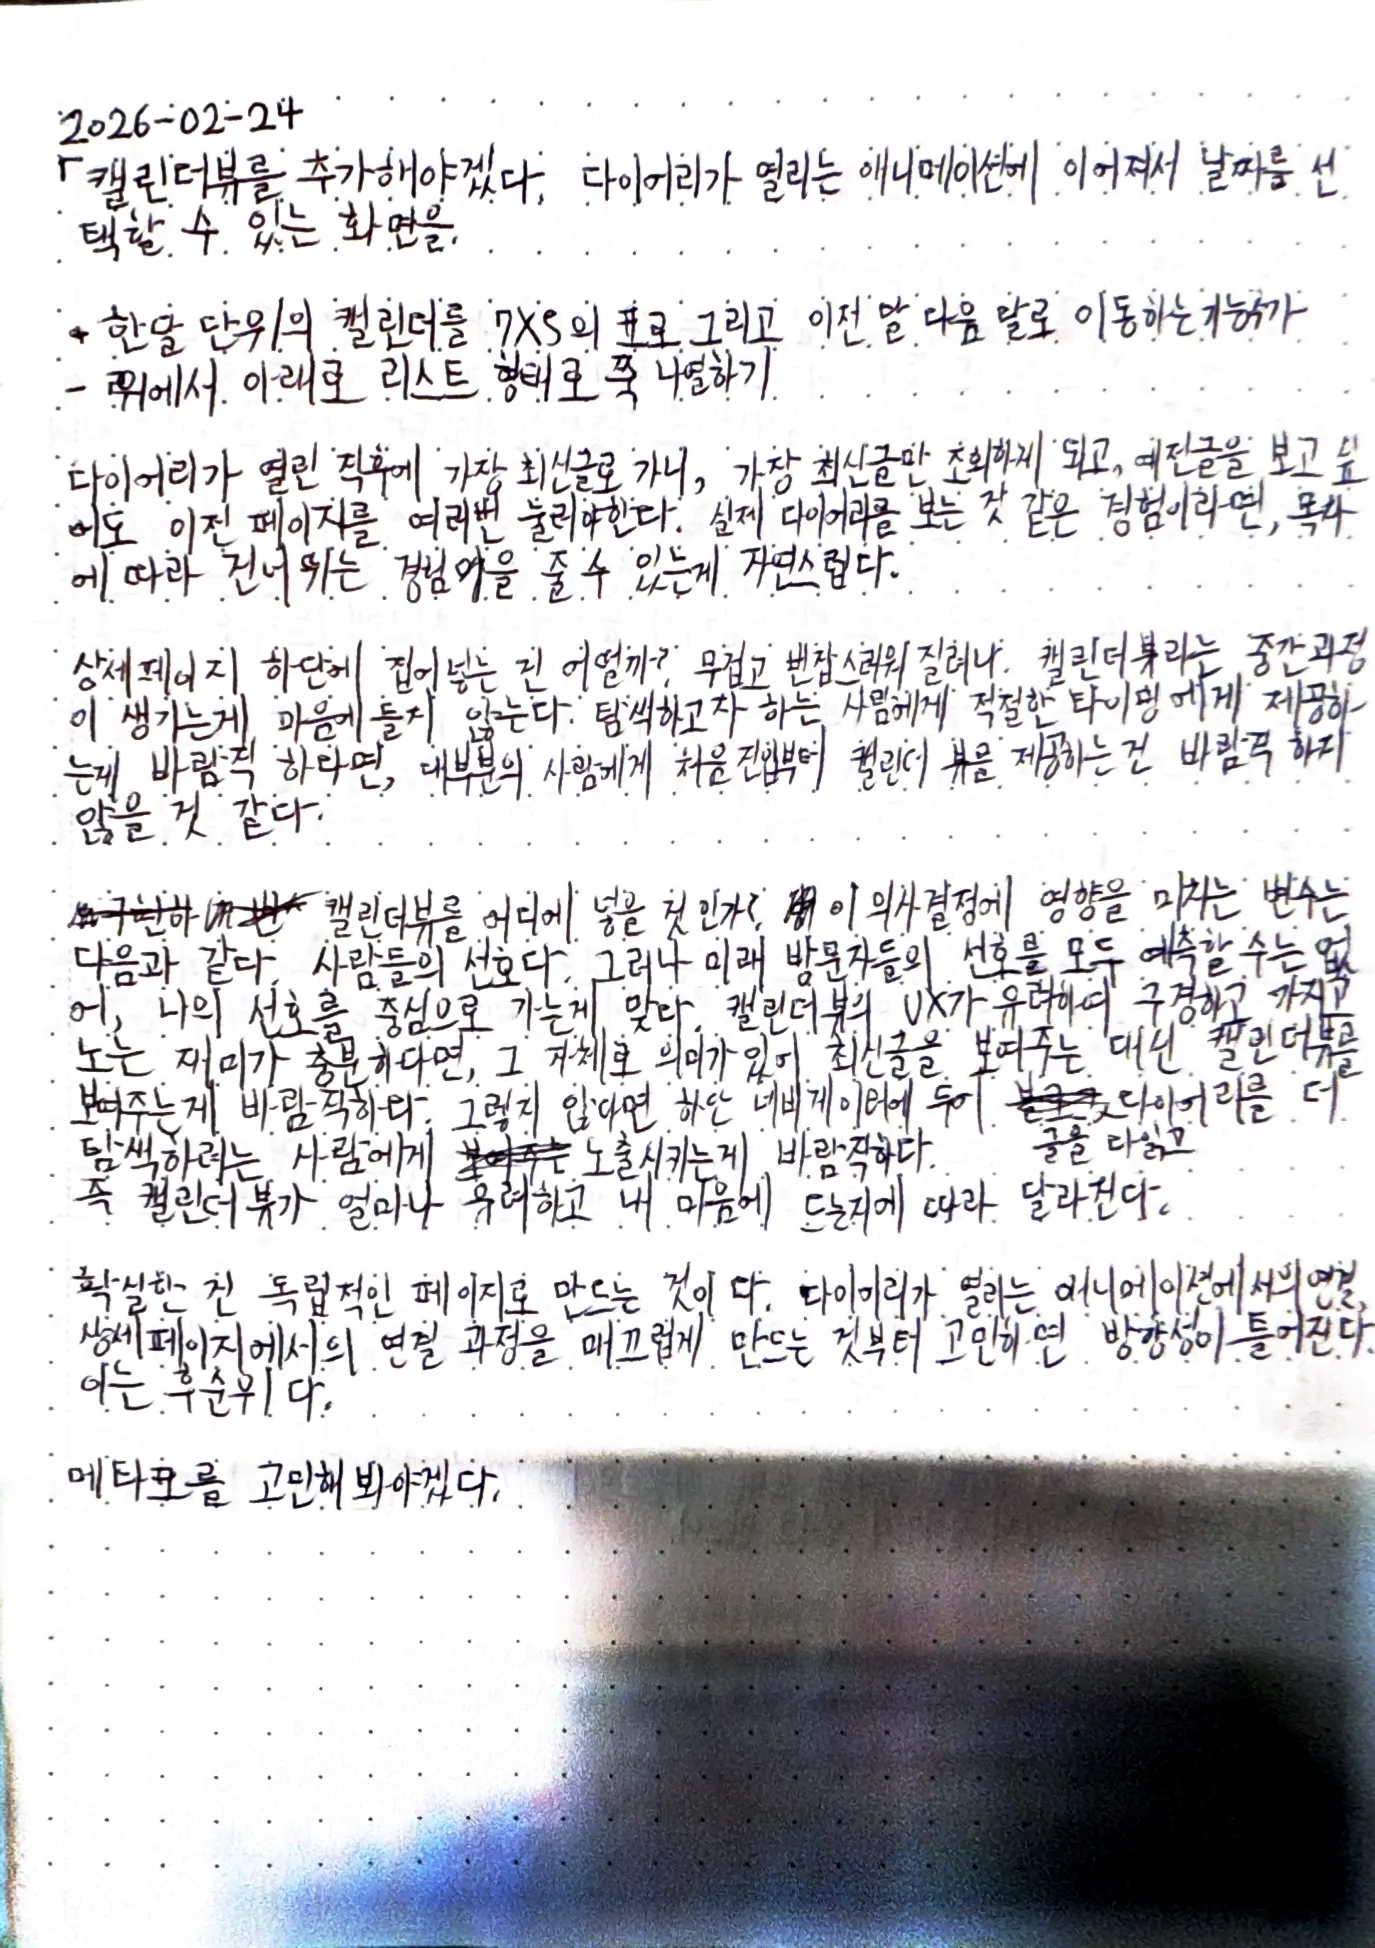 2026-02-24
「캘린더뷰를 추가해야겠다. 다이어리가 열리는 애니메이션에 이어져서 날짜를 선
택할 수 있는 화면을.
+ 한달 단위의 캘린더를 7X5의 표로 그리고 이전 달 다음 달로 이동하는 기능추가
- 위에서 아래로 리스트 형태로 쭉 나열하기
다이어리가 열린 직후에 가장 최신글로 가니, 가장 최신글만 조회하게 되고, 예전글을 보고 싶
어도 이전 페이지를 여러번 눌러야한다. 실제 다이어리를 보는 것 같은 경험이라면, 목차
에 따라 건너뛰는 경험을 줄 수 있는게 자연스럽다.
상세페이지 하단에 집어넣는 건 어떨까? 무겁고 번잡스러워 질려나. 캘린더뷰라는 중간과정
이 생기는게 마음에 들지 않는다. 탐색하고자 하는 사람에게 적절한 타이밍에게 제공하
는게 바람직 하다면, 대부분의 사람에게 처음진입부터 캘린더 뷰를 제공하는건 바람직 하지
않을 것 같다.
캘린더뷰를 어디에 넣을 것인가? 이 의사결정에 영향을 미치는 변수는
다음과 같다. 사람들의 선호다. 그러나 미래 방문자들의 선호를 모두 예측할 수는 없
어, 나의 선호를 중심으로 가는게 맞다. 캘린더뷰의 UX가 유려하여 구경하고 가지고
노는 재미가 충분하다면, 그 자체로 의미가 있어 최신글을 보여주는 대신 캘린더뷰를
보여주는게 바람직하다. 그렇지 않다면 하단 네비게이터에 두어 다이어리를 더
탐색하려는 사람에게 노출시키는게 바람직하다. 글을 다읽고
즉 캘린더뷰가 얼마나 유려하고 내 마음에 드는지에 따라 달라진다.
확실한 건 독립적인 페이지로 만드는 것이다. 다이어리가 열리는 애니메이션에서의 연결,
상세페이지에서의 연결 과정을 매끄럽게 만드는 것부터 고민하면 방향성이 틀어진다.
이는 후순위다.
메타포를 고민해봐야겠다.